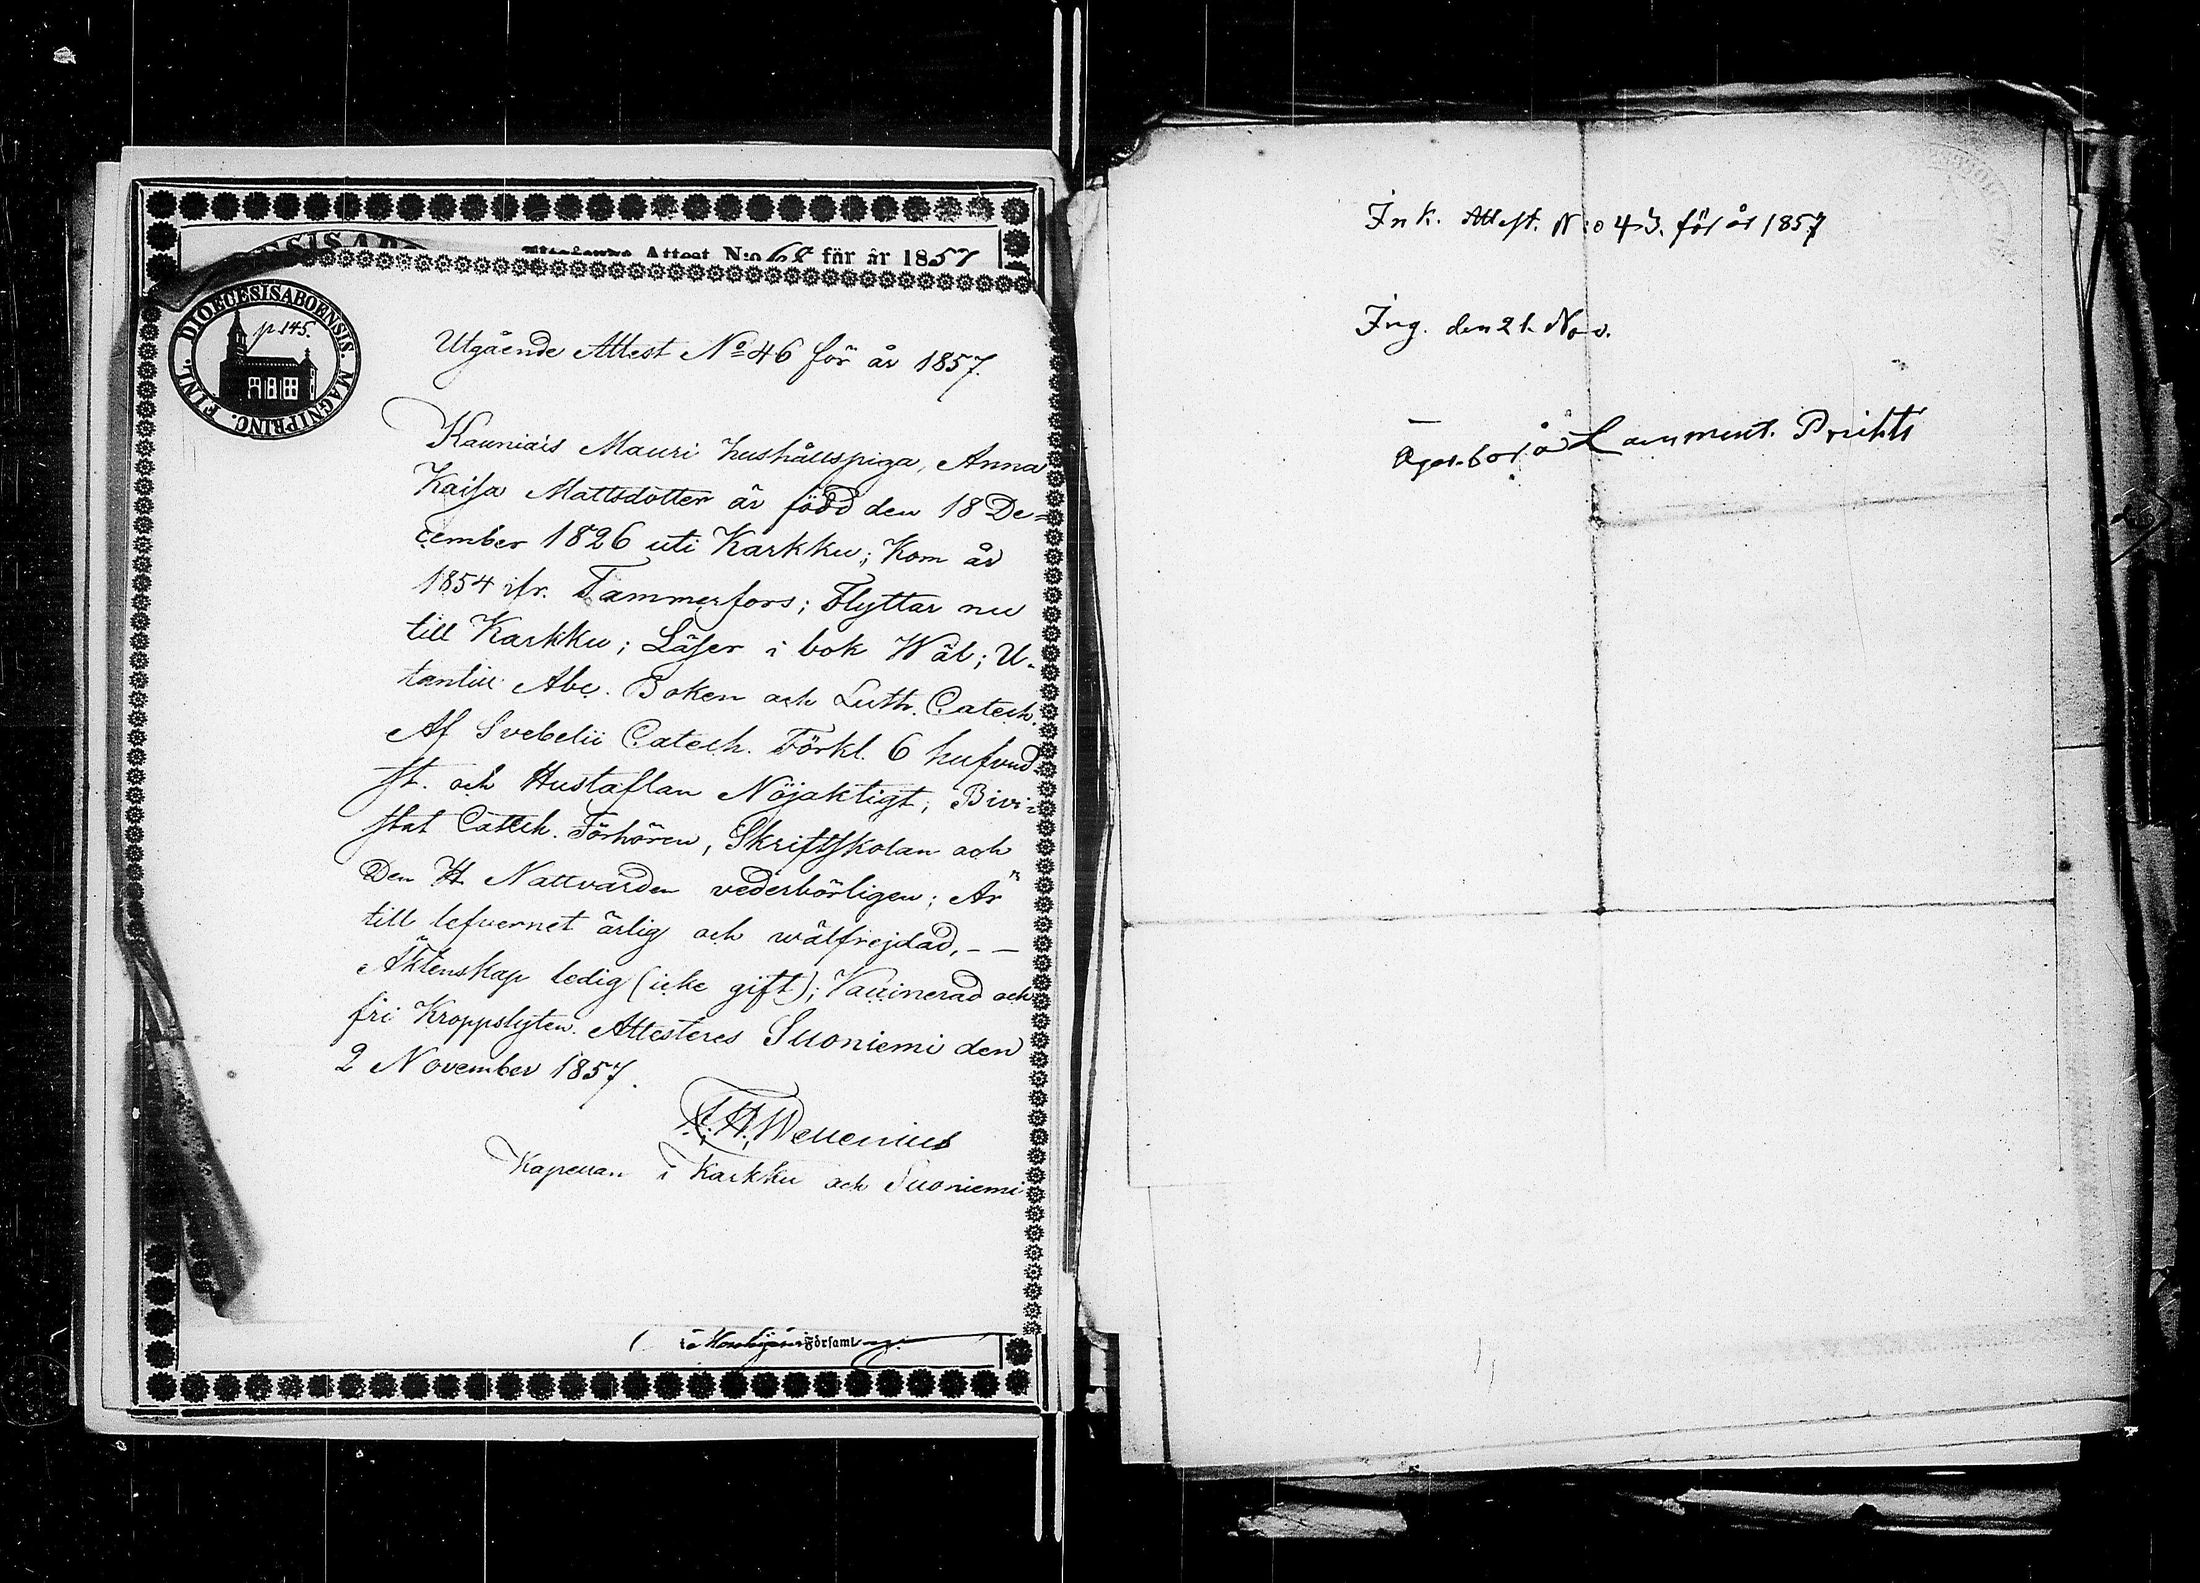 Attest N:o 68 för år 1857
DIOECESIS ABOENSIS. MAGNI PRINC. FINL.
p 145.
Utgående Attest No 46 för år 1857.
Kauniais Mauri hushållspiga, Anna
Kaisa Mattsdotter är född den 18 De=
cember 1826 uti Karkku; Kom år
1854 ifr. Tammerfors; Flyttar nu
till Karkku; Läser i bok Wäl; U-
tantill Abc. Boken och Luth. Catech.
Af Svebelii Catech. Förkl. 6 hufvud
st. och Hustaflan Nöjaktigt; Bivi-
stat Catech. Förhören, Skriftskolan och
Den H. Nattvarden vederbörligen; Är
till lefvernet ärlig och wälfrejdad, - -
Äktenskap ledig (icke gift); Vaccinerad och
fri Kroppslyten. Attesteres Suoniemi den
2 November 1857.
Wellenius
Kapellan i Karkku och Suoniemi
i Församl
Ink. Attest. N:o 43. för år 1857
Ing. den 21. Nov.